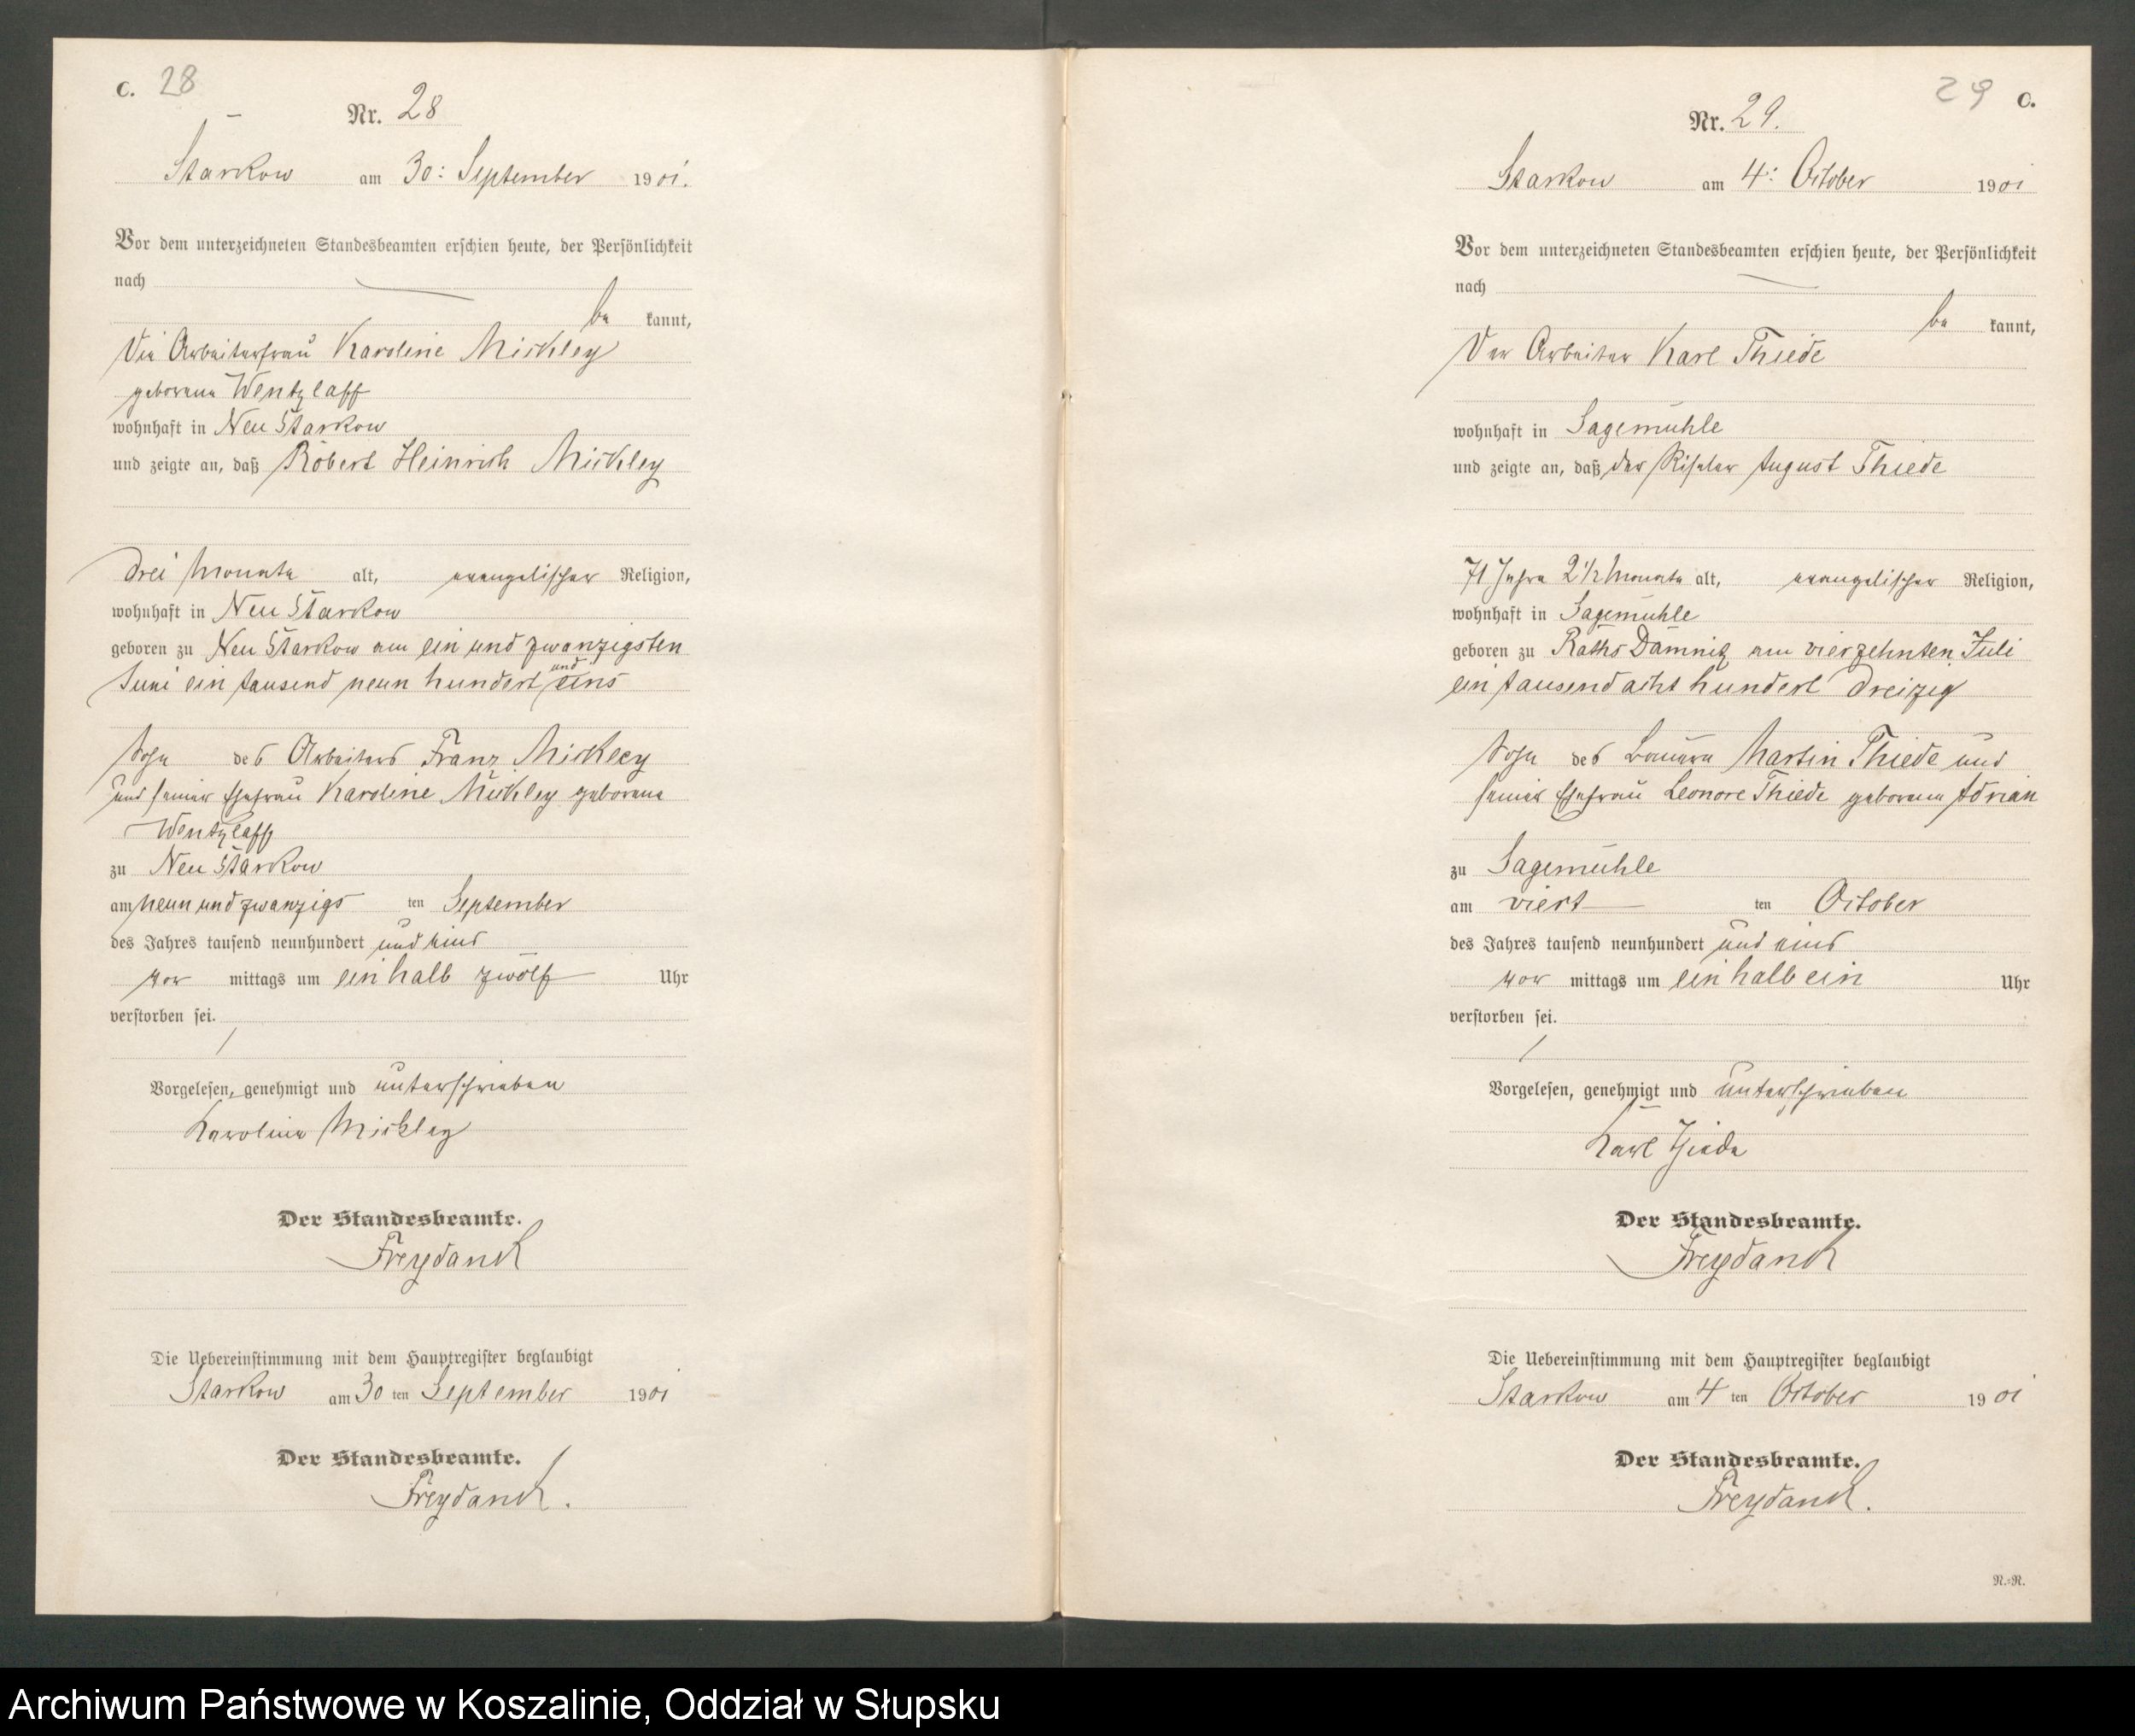 C. 28
Nr. 28
Starkow am 30: September 1901.
Vor dem unterzeichneten Standesbeamten erschien heute, der Persönlichkeit
nach
be kannt,
Die Arbeiterfrau Karoline Mickley
geborene Wentzlaff
wohnhaft in Neu Starkow
und zeigte an, daß Robert Heinrich Mickley
drei Monate alt, evangelischer Religion,
wohnhaft in Neu Starkow
geboren zu Neu Starkow am ein und zwanzigsten
Juni ein tausend neun hundert und eins
Sohn des Arbeiters Franz Mickley
und seiner Ehefrau Karoline Mickley geborene
Wentzlaff
zu Neu Starkow
am neun und zwanzigs ten September
des Jahres tausend neunhundert und eins
vor mittags um ein halb zwölf Uhr
verstorben sei.
Vorgelesen, genehmigt und unterschrieben
Karoline Mickley
Der Standesbeamte.
Freydanck
Die Uebereinstimmung mit dem Hauptregister beglaubigt
Starkow am 30 ten September 1901
Der Standesbeamte.
Freydanck.
29 C.
Nr. 29.
Starkow am 4: October 1901
Vor dem unterzeichneten Standesbeamten erschien heute, der Persönlichkeit
nach
be kannt,
Der Arbeiter Karl Thiede
wohnhaft in Sagemühle
und zeigte an, daß der August Thiede
71 Jahre 2 1/2 Monate alt, evangelischer Religion,
wohnhaft in Sagemühle
geboren zu Raths Damnitz am vierzehnten Juli
ein tausend acht hundert dreizig
Sohn des Bauern Martin Thiede und
seiner Ehefrau Leonore Thiede geborene Adrian
zu Sagemühle
am viert ten October
des Jahres tausend neunhundert und eins
vor mittags um ein halb ein Uhr
verstorben sei.
Vorgelesen, genehmigt und unterschrieben
Karl Thiede
Der Standesbeamte.
Freydanck
Die Uebereinstimmung mit dem Hauptregister beglaubigt
Starkow am 4 ten October 1901
Der Standesbeamte.
Freydanck.
N.=R.
Archiwum Państwowe w Koszalinie, Oddział w Słupsku